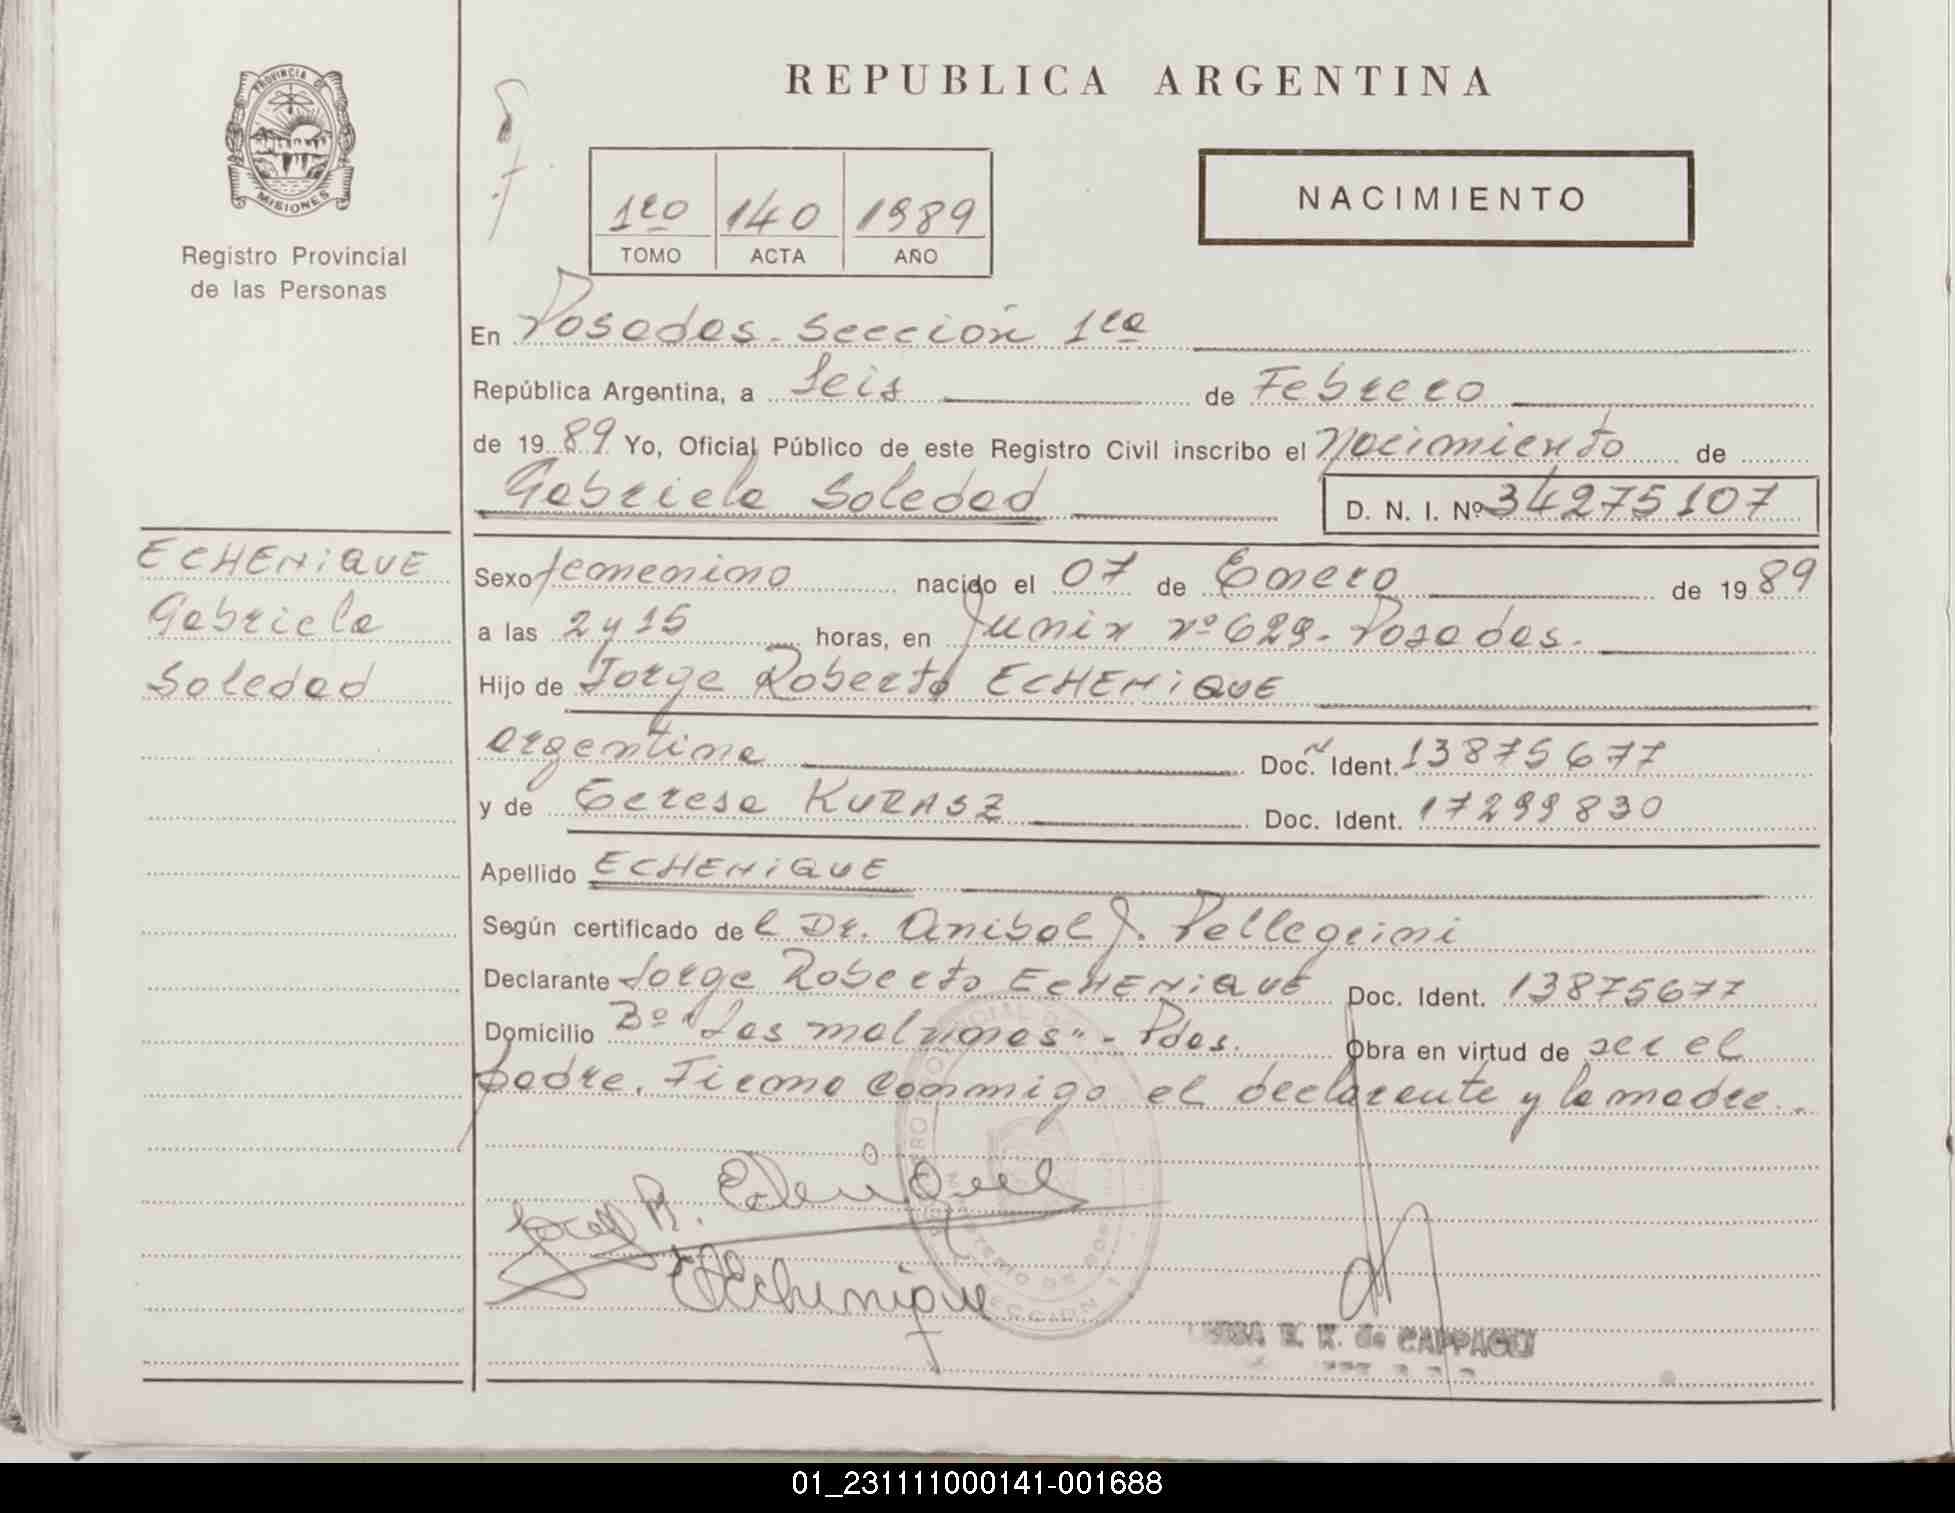 PROVINCIA DE
MISIONES
Registro Provincial
de las Personas
REPUBLICA ARGENTINA
1ro 140 1989
TOMO ACTA AÑO
NACIMIENTO
En Posadas. Sección 1ra
República Argentina, a Seis de Febrero
de 1989 Yo, Oficial Público de este Registro Civil inscribo el Nacimiento de
Gabriela Soledad D. N. I. Nº 34275107
ECHENIQUE
Gabriela
Soledad
Sexo femenino nacido el 07 de Enero de 1989
a las 2 y 15 horas, en Junin nº 629. Posadas.
Hijo de Jorge Roberto ECHENIQUE
argentina Doc. Ident. 13875677
y de Teresa KURASZ Doc. Ident. 17299830
Apellido ECHENIQUE
Según certificado del Dr. Anibal J. Pellegrini
Declarante Jorge Roberto ECHENIQUE Doc. Ident. 13875677
Domicilio Bº "Las malvinas" - Pdas. Obra en virtud de ser el
padre. Firma conmigo el declarante y la madre.
R. Echenique
Echenique
E. K. de
01_231111000141-001688